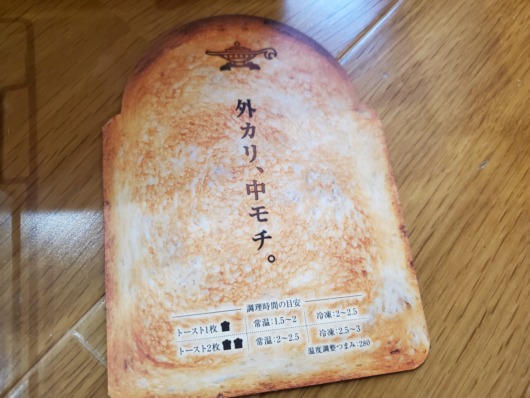 外カリ、中モチ。
調理時間の目安
トースト1枚 常温:1.5~2 冷凍:2~2.5
トースト2枚 常温:2~2.5 冷凍:2.5~3
温度調整つまみ:280